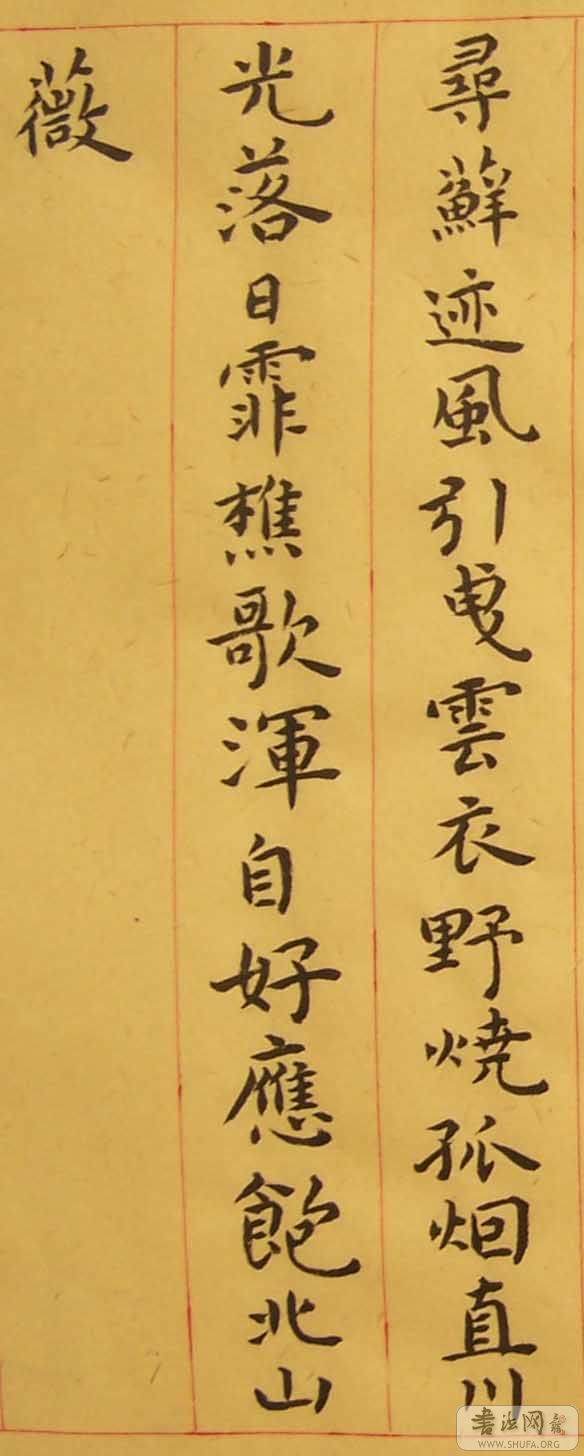 尋蘚迹風引曳雲衣野燒孤烟直川
光落日霏樵歌渾自好應飽北山
薇
书法网
WWW.SHUFA.ORG